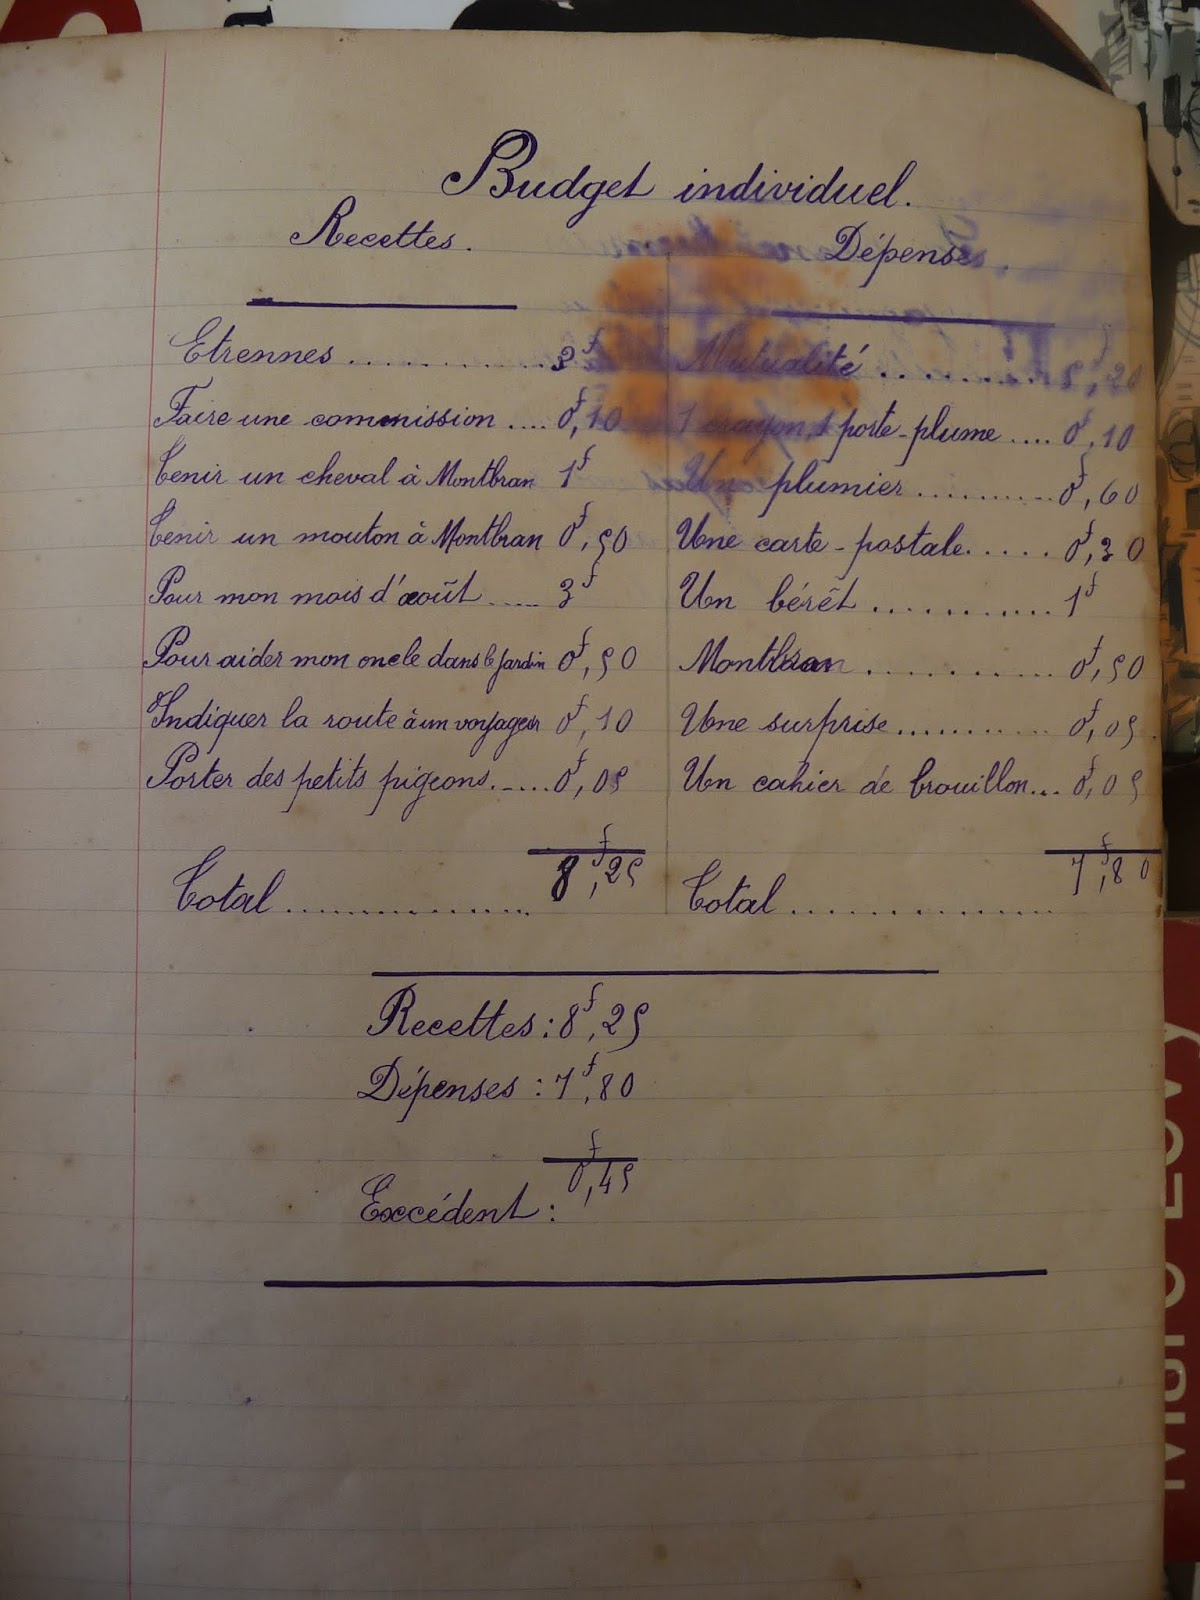 Budget individuel.
Recettes. Dépenses.
Etrennes .......... 3f Mutualité .......... 5f,20
Faire une commission .... 0f,10 1 crayon, 1 porte-plume .... 0f,10
Tenir un cheval à Montbran 1f Un plumier .......... 0f,60
Tenir un mouton à Montbran 0f,50 Une carte-postale ..... 0f,30
Pour mon mois d'août ..... 3f Un bérêt ........... 1f
Pour aider mon oncle dans le jardin 0f,50 Montbran .......... 0f,50
Indiquer la route à un voyageur 0f,10 Une surprise ........... 0f,05
Porter des petits pigeons ..... 0f,05 Un cahier de brouillon ... 0f,05
Total .............. 8f,25 Total .............. 7f,80
Recettes : 8f,25
Dépenses : 7f,80
Excédent : 0f,45